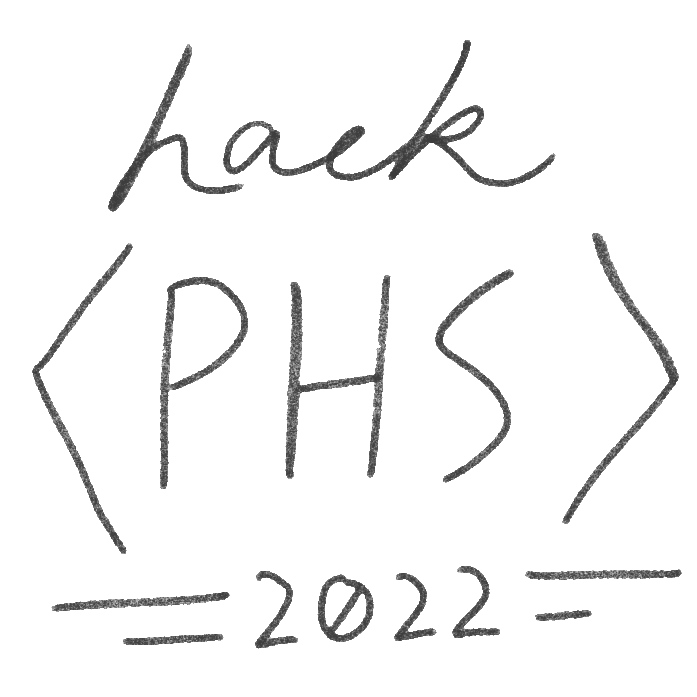 hack
<PHS>
2022